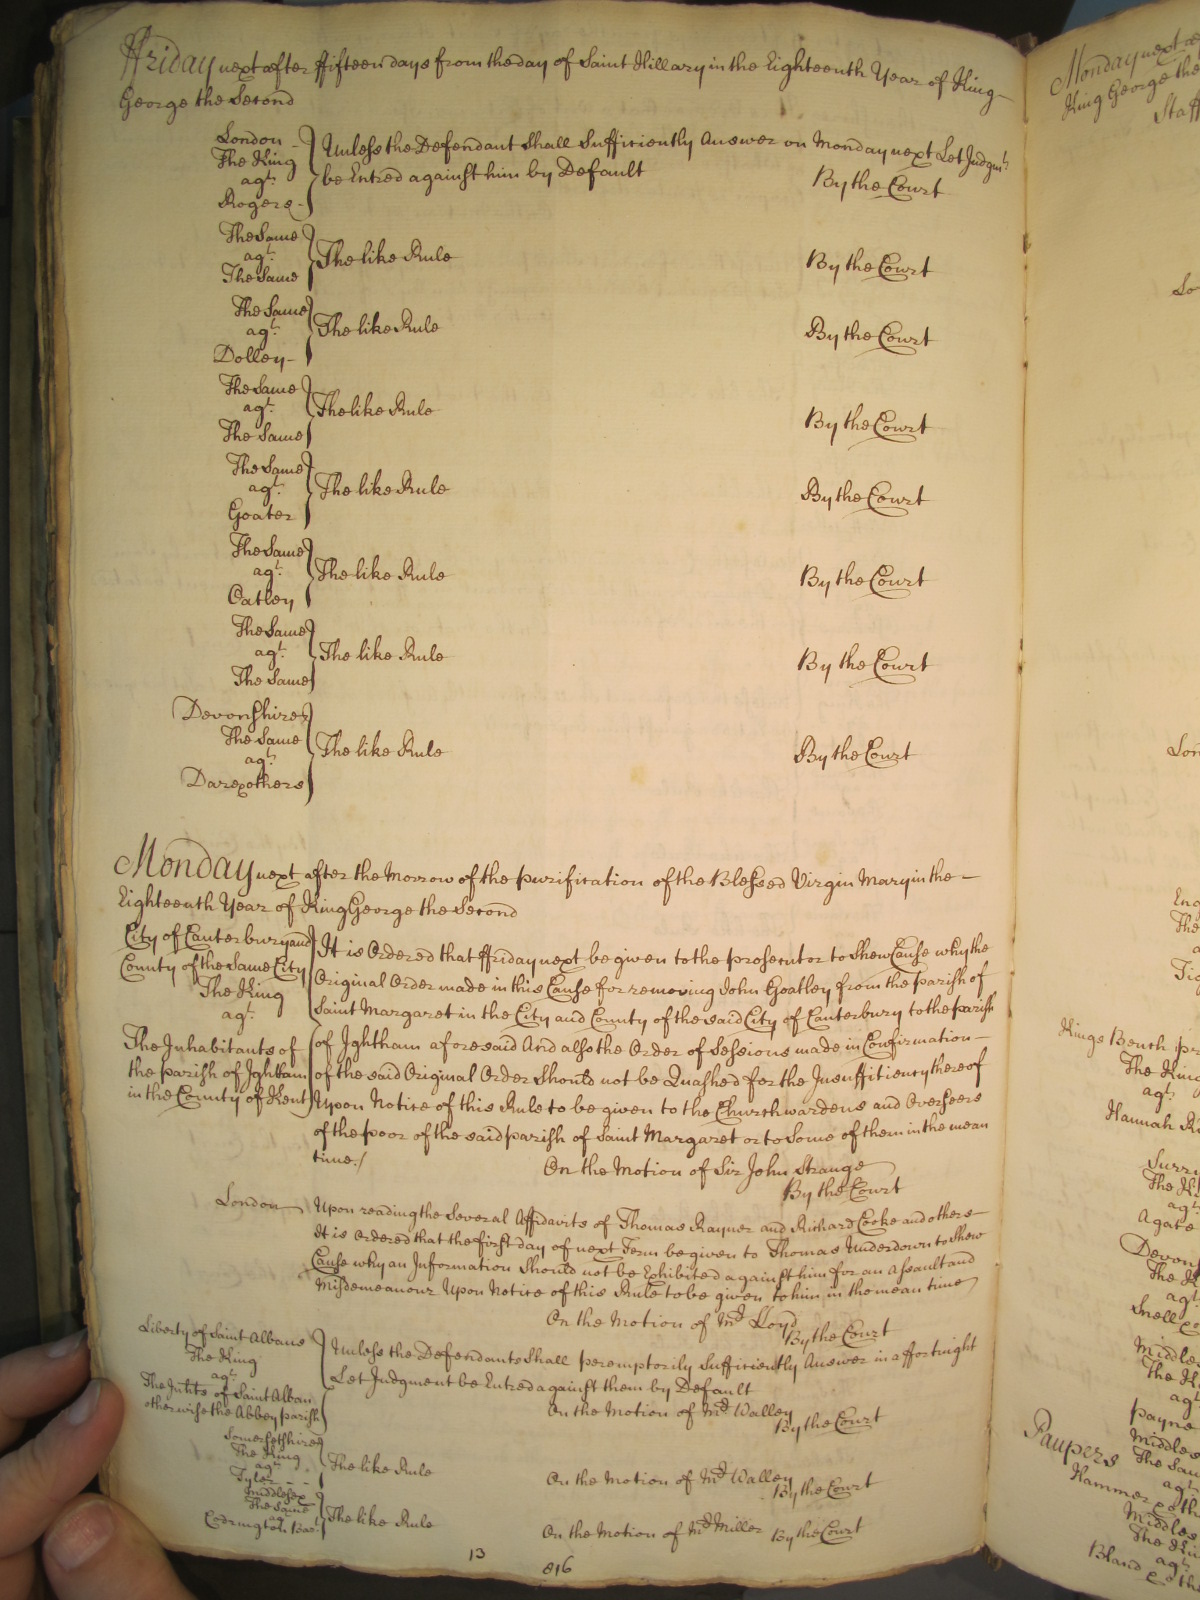 ffriday next after ffifteen days from the day of Saint Hillary in the Eighteenth Year of King
George the Second
London
The King
agt.
Rogers
Unless the Defendant Shall Sufficiently Answer on Monday next Let Judgmt.
be Entred against him by Default By the Court
The Same
agt.
The Same
The like Rule By the Court
The Same
agt.
Dolley
The like Rule By the Court
The Same
agt.
The Same
The like Rule By the Court
The Same
agt.
Goater
The like Rule By the Court
The Same
agt.
Oatley
The like Rule By the Court
The Same
agt.
The Same
The like Rule By the Court
Devonshire
The Same
agt.
Dare & others
The like Rule By the Court
Monday next after the Morrow of the purification of the Blessed Virgin Mary in the
Eighteenth Year of King George the Second
City of Canterbury and
County of the same City
The King
agt.
The Inhabitants of
the parish of Ightham
in the County of Kent
It is Ordered that ffriday next be given to the prosecutor to shew Cause why the
Original Order made in this Cause for removing John Goatley from the parish of
Saint Margaret in the City and County of the said City of Canterbury to the parish
of Ightham aforesaid And also the Order of Sessions made in Confirmation
of the said Original Order Should not be Quashed for the Insufficiency thereof
Upon Notice of this Rule to be given to the Churchwardens and Overseers
of the poor of the said parish of Saint Margaret or to Some of them in the mean
time./ On the Motion of Sir John Strange
By the Court
London
Upon reading the Several Affidavits of Thomas Rayner and Richard Cooke and others
It is Ordered that the first day of next Term be given to Thomas Underdown to shew
Cause why an Information Should not be Exhibited against him for an Assault and
Misdemeanour Upon Notice of this Rule to be given to him in the mean time
On the Motion of Mr. Lloyd
By the Court
Liberty of Saint Albans
The King
agt.
The Inhts of Saint Alban
otherwise the Abbey parish
Unless the Defendants Shall peremptorily Sufficiently Answer in a ffortnight
Let Judgment be Entred against them by Default
On the Motion of Mr. Walley
By the Court
Somersetshire
The King
agt.
Tyler
The like Rule On the Motion of Mr. Walley
By the Court
Middlesex
The Same
agt.
Codrington Bar.
The like Rule On the Motion of Mr. Miller By the Court
13
816
Monday next
King George the
Kings Bench
The King
agt.
Hannah
Surry
agt.
Agate
agt.
Snell
agt.
Payne
Paupers
The Same
agt.
Hammer & oth
agt.
Bland & oth